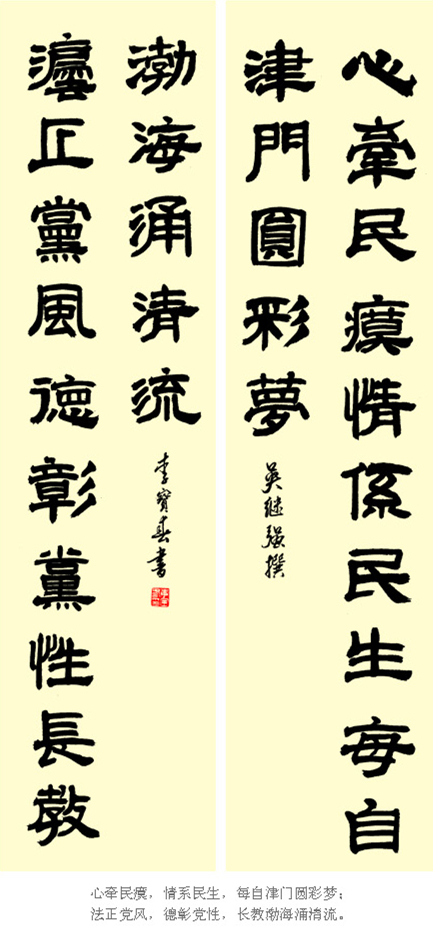 心牽民瘼情係民生每自
津門圓彩夢
吴继强撰
灋正黨風德彰黨性長教
渤海涌清流
李寶春書
心牵民瘼，情系民生，每自津门圆彩梦；
法正党风，德彰党性，长教渤海涌清流。